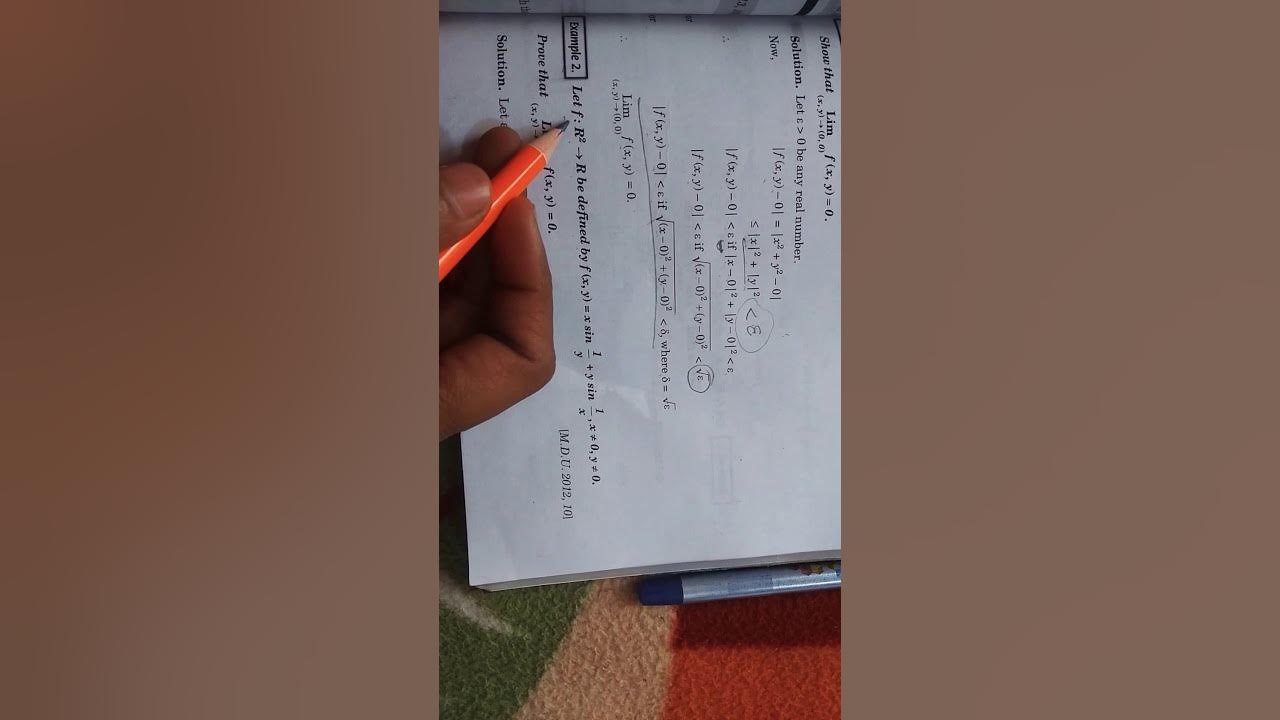 Show that Lim f (x, y) = 0.
(x, y) → (0, 0)
Solution. Let ε > 0 be any real number.
Now, |f (x, y) – 0| = |x² + y² – 0|
≤ |x|² + |y|² < ε
∴ |f (x, y) – 0| < ε if |x – 0|² + |y – 0|² < ε
or |f (x, y) – 0| < ε if √(x – 0)² + (y – 0)² < √ε
or |f (x, y) – 0| < ε if √(x – 0)² + (y – 0)² < δ, where δ = √ε
∴ Lim f (x, y) = 0.
(x, y) → (0, 0)
Example 2. Let f : R² → R be defined by f (x, y) = x sin 1/y + y sin 1/x, x ≠ 0, y ≠ 0.
[M.D.U. 2012, 10]
Prove that f (x, y) = 0.
(x, y)
Solution. Let